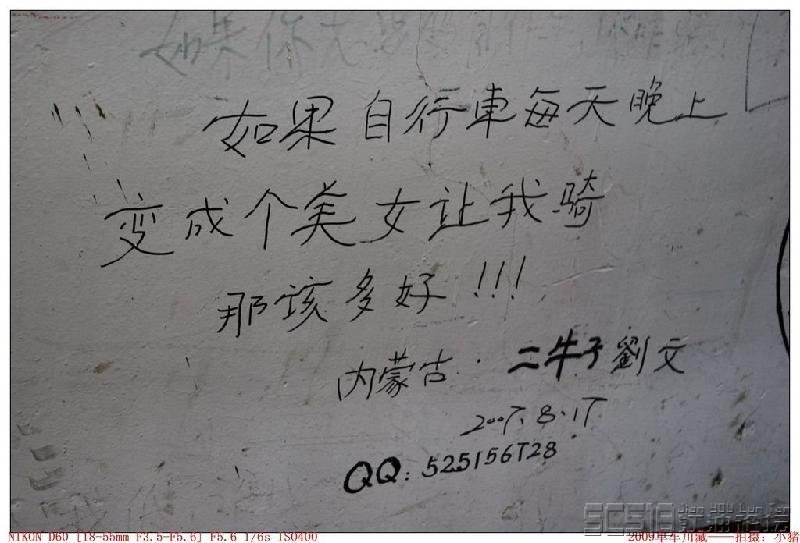 如果你
如果自行車每天晚上
变成个美女让我骑
那该多好!!!
内蒙古·二牛子劉文
2007.8.17
QQ:525156728
NIKON D60 [18-55mm F3.5-F5.6] F5.6 1/6s ISO400
2009单车川藏——拍摄:小猪